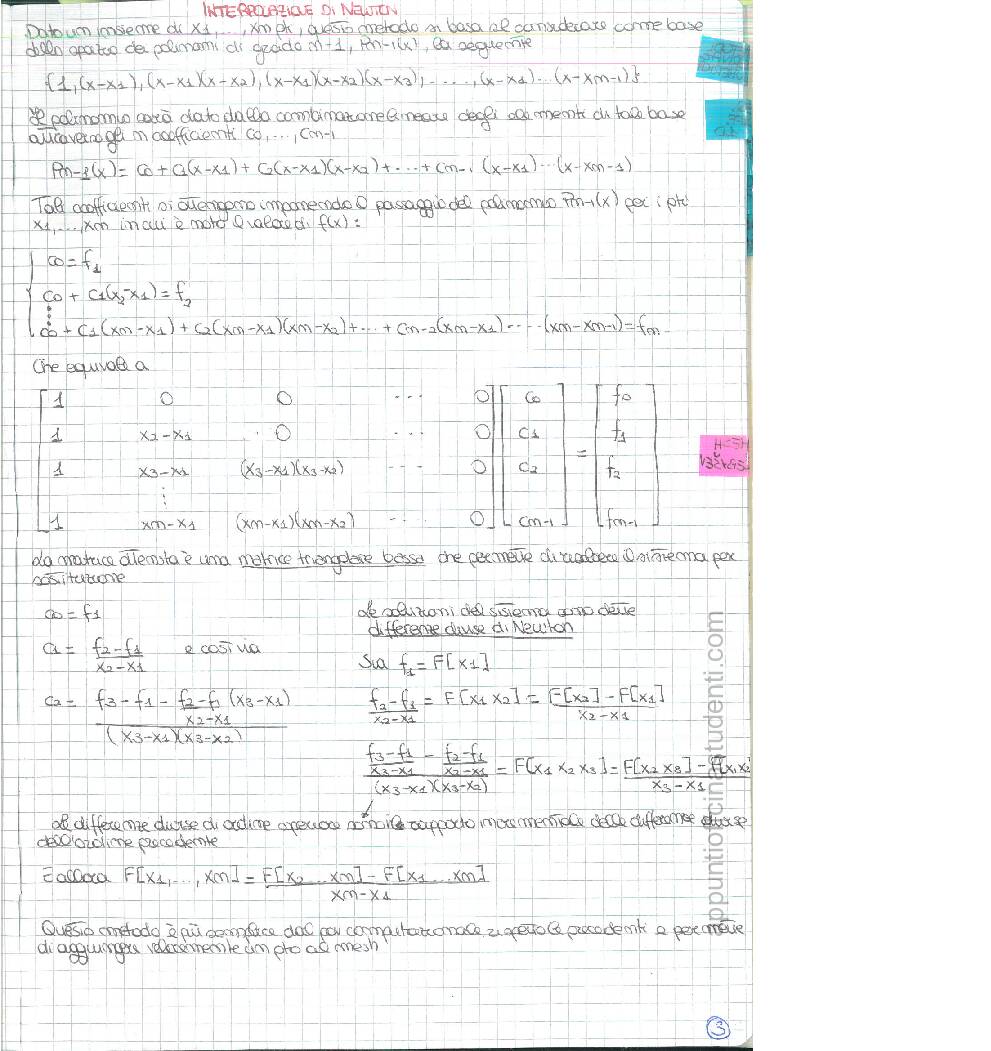 INTERPOLAZIONE DI NEWTON
Dato un insieme di x1, ..., xm pti, questo metodo si basa nel considerare come base
dello spazio dei polinomi di grado n-1, Pn-1(x), la seguente
{1, (x-x1), (x-x1)(x-x2), (x-x1)(x-x2)(x-x3), ....., (x-x1)...(x-xm-1)}
Il polinomio sarà dato dalla combinazione lineare degli elementi di tale base
attraverso gli n coefficienti c0, ..., cm-1
Pn-1(x) = c0 + c1(x-x1) + c2(x-x1)(x-x2) + ... + cm-1 (x-x1)...(x-xm-1)
Tali coefficienti si ottengono imponendo il passaggio del polinomio Pn-1(x) per i pti
x1, ..., xm in cui è noto il valore di f(x):
c0 = f1
c0 + c1(x2-x1) = f2
c0 + c1(xm-x1) + c2(xm-x1)(xm-x2) + ... + cm-2(xm-x1) ..... (xm-xm-1) = fm
Che equivale a
1 0 0 ... 0 c0 f0
1 x2-x1 0 ... 0 c1 = f1
1 x3-x1 (x3-x1)(x3-x2) ... 0 c2 f2
⋮
1 xm-x1 (xm-x1)(xm-x2) ... 0 cm-1 fm-1
La matrice ottenuta è una matrice triangolare bassa che permette di risolvere il sistema per
sostituzione
c0 = f1
c1 = f2-f1 / x2-x1 e così via
c2 = f3-f1 - f2-f1 / x2-x1 (x3-x1) / (x3-x1)(x3-x2)
Le soluzioni del sistema sono dette
differenze divise di Newton
Sia f1 = F[x1]
f2-f1 / x2-x1 = F[x1 x2] = F[x2] - F[x1] / x2-x1
f3-f1 / x3-x1 - f2-f1 / x2-x1 / (x3-x1)(x3-x2) = F[x1 x2 x3] = F[x2 x3] - F[x1 x2 / x3-x1
Le differenze divise di ordine superiore sono il rapporto incrementale delle differenze divise
dell'ordine precedente
E allora F[x1, ..., xm] = F[x2 ... xm] - F[x1 ... xm] / xm-x1
Questo metodo è più semplice dal pov computazionale rispetto ai precedenti e permette
di aggiungere velocemente un pto al mesh
3
appuntiofficinastudenti.com